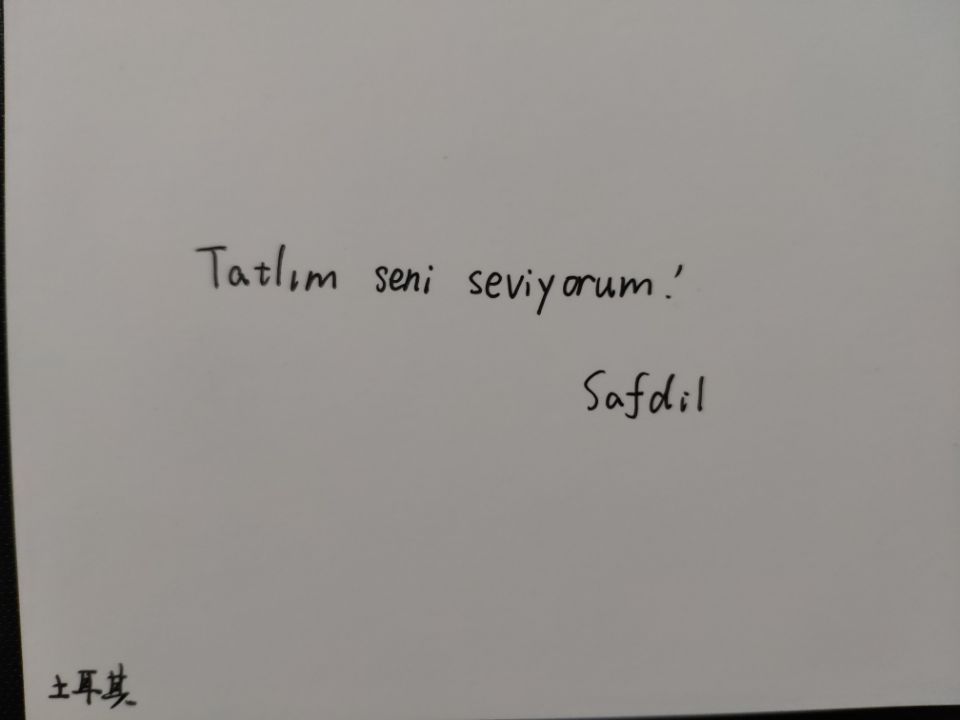 Tatlım seni seviyorum!
Safdil
土耳其